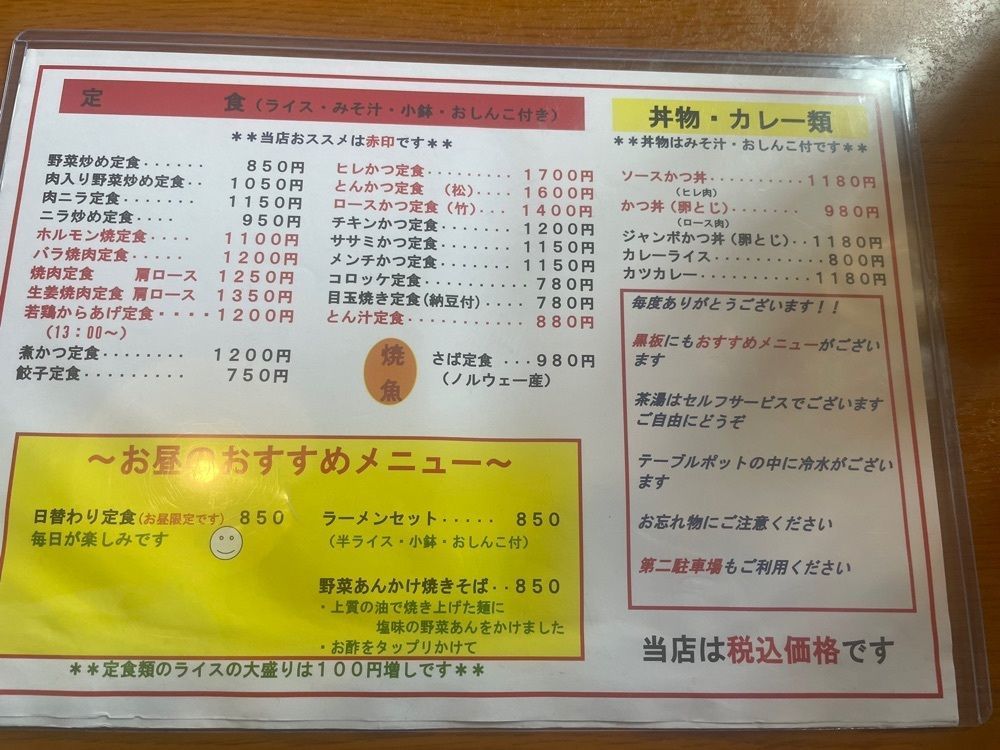 定　食(ライス・みそ汁・小鉢・おしんこ付き)
＊＊当店おススメは赤印です＊＊
野菜炒め定食‥‥‥ 850円
肉入り野菜炒め定食‥ 1050円
肉ニラ定食‥‥‥‥ 1150円
ニラ炒め定食‥‥ 950円
ホルモン焼定食‥‥ 1100円
バラ焼肉定食‥‥‥ 1200円
焼肉定食　肩ロース 1250円
生姜焼肉定食 肩ロース 1350円
若鶏からあげ定食‥‥1200円
(13：00〜)
煮かつ定食‥‥‥‥ 1200円
餃子定食‥‥‥‥‥ 750円
ヒレかつ定食‥‥‥‥‥ 1700円
とんかつ定食 (松)‥‥ 1600円
ロースかつ定食(竹)‥‥ 1400円
チキンかつ定食‥‥‥‥ 1200円
ササミかつ定食‥‥‥‥ 1150円
メンチかつ定食‥‥‥‥ 1150円
コロッケ定食‥‥‥‥‥ 780円
目玉焼き定食(納豆付)‥‥ 780円
とん汁定食‥‥‥‥‥‥ 880円
焼魚
さば定食 ‥‥980円
(ノルウェー産)
丼物・カレー類
＊＊丼物はみそ汁・おしんこ付です＊＊
ソースかつ丼‥‥‥‥‥1180円
(ヒレ肉)
かつ丼(卵とじ)‥‥‥‥ 980円
(ロース肉)
ジャンボかつ丼(卵とじ)‥1180円
カレーライス‥‥‥‥‥ 800円
カツカレー‥‥‥‥‥‥1180円
毎度ありがとうございます！！
黒板にもおすすめメニューがござい
ます
茶湯はセルフサービスでございます
ご自由にどうぞ
テーブルポットの中に冷水がござい
ます
お忘れ物にご注意ください
第二駐車場もご利用ください
当店は税込価格です
〜お昼のおすすめメニュー〜
日替わり定食(お昼限定です) 850
毎日が楽しみです
ラーメンセット‥‥‥ 850
(半ライス・小鉢・おしんこ付)
野菜あんかけ焼きそば‥850
・上質の油で焼き上げた麺に
塩味の野菜あんをかけました
・お酢をタップリかけて
＊＊定食類のライスの大盛りは100円増しです＊＊